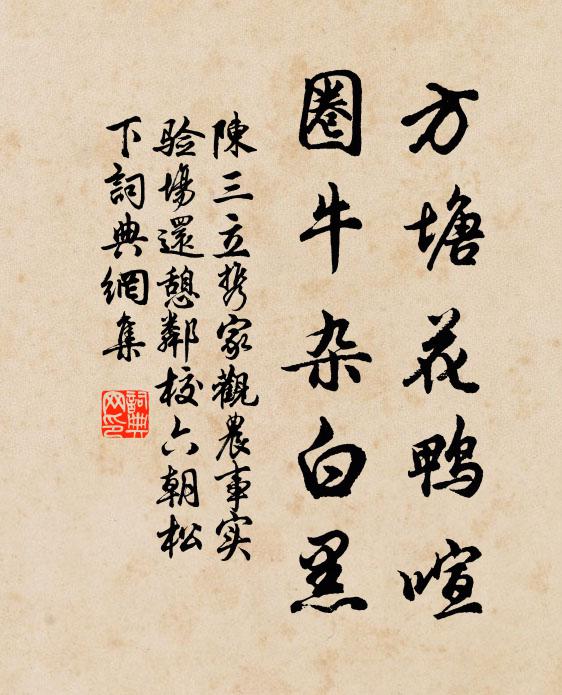 方塘花鸭喧
圈牛杂白黑
陳三立携家觀農事实
验場還憩鄰校六朝松
下詞典網集
詞典网印